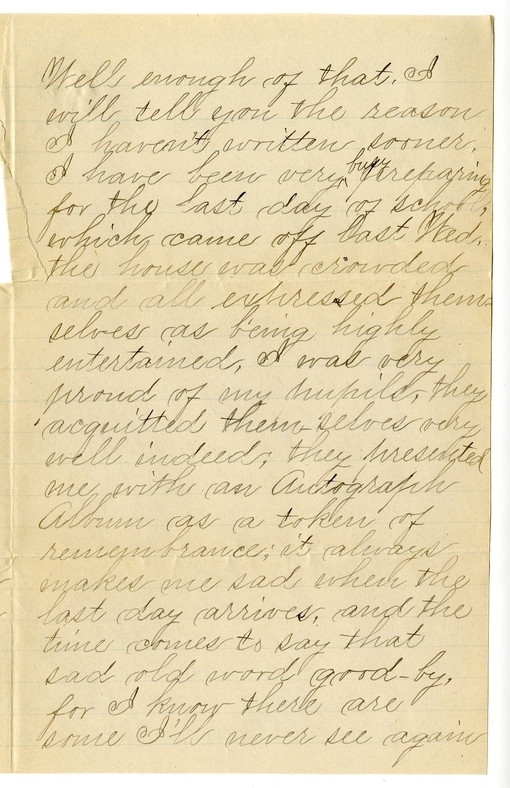 Well enough of that. I
will tell you the reason
I haven't written sooner.
I have been very busy preparing
for the last day of school,
which came off last Wed.
the house was crowded
and all expressed them-
selves as being highly
entertained, I was very
proud of my pupils, they
acquitted them-selves very
well indeed; they presented
me with an Autograph
Album as a token of
remembrance; it always
makes me sad when the
last day arrives, and the
time comes to say that
sad old word good-by,
for I know there are
some I'll never see again